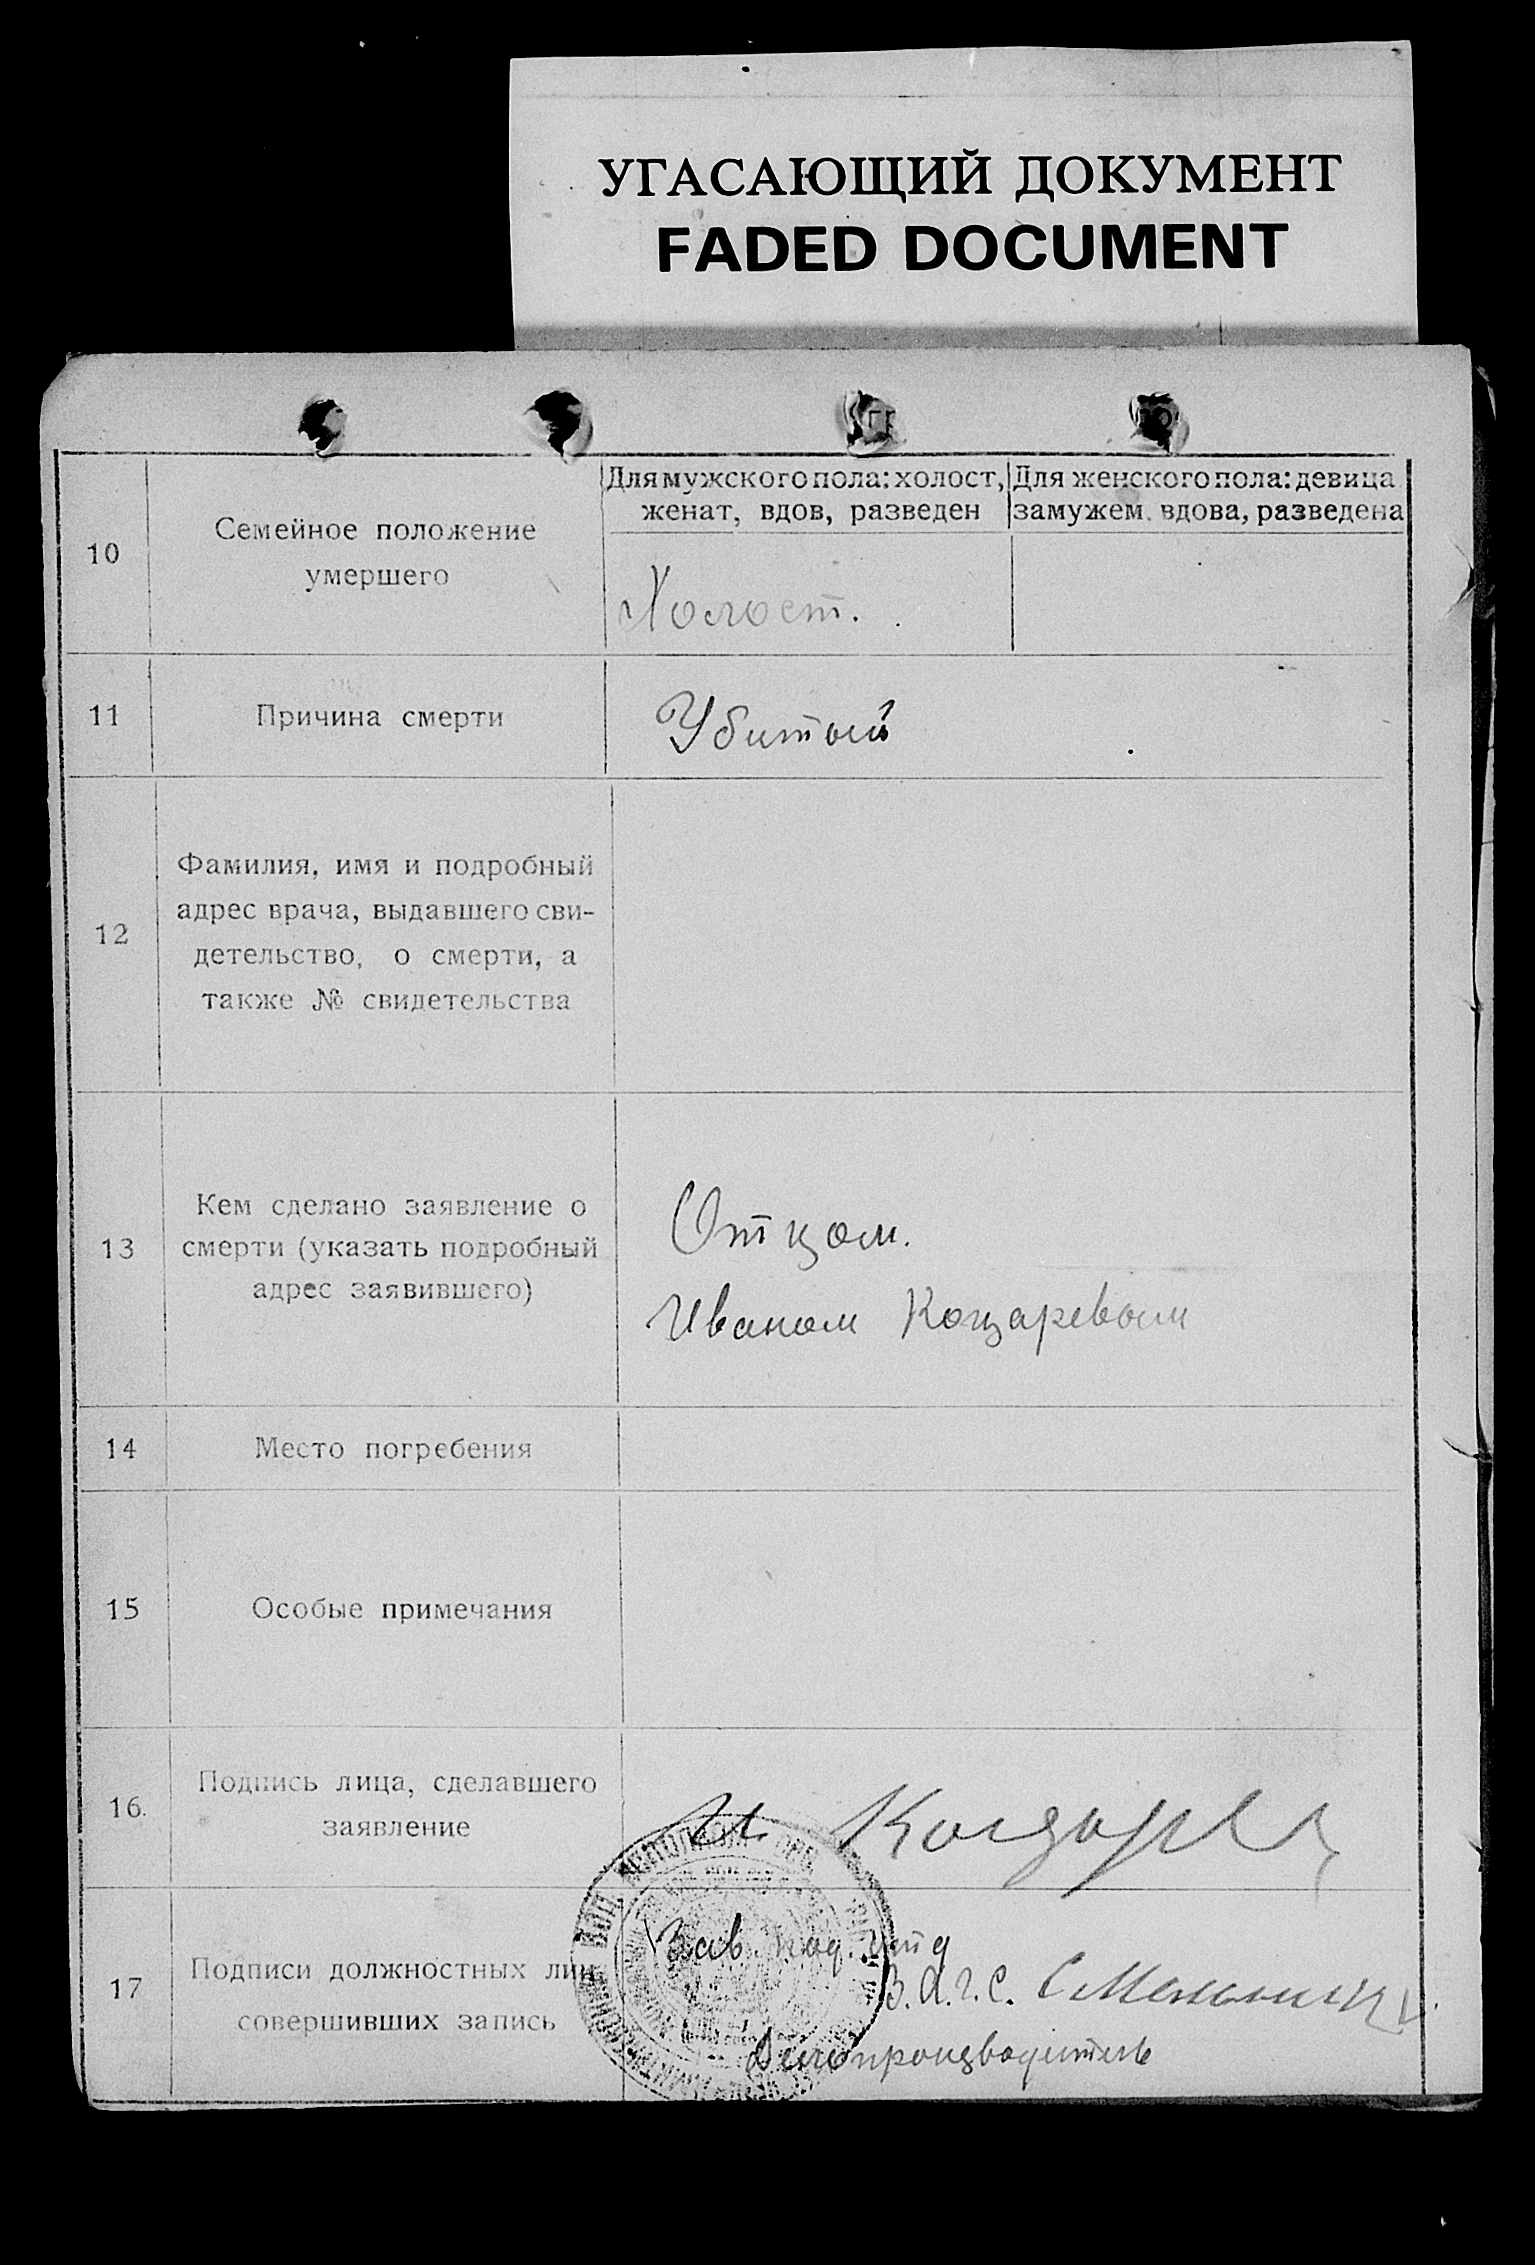 УГАСАЮЩИЙ ДОКУМЕНТ
FADED DOCUMENT
10
Семейное положение
умершего
Для мужского пола: холост,
женат, вдов, разведен
Для женского пола: девица
замужем, вдова, разведена
Холост.
11
Причина смерти
Убитый
12
Фамилия, имя и подробный
адрес врача, выдавшего сви-
детельство, о смерти, а
также № свидетельства
13
Кем сделано заявление о
смерти (указать подробный
адрес заявившего)
Отцом.
Иваном Коцаревым
14
Место погребения
15
Особые примечания
16.
Подпись лица, сделавшего
заявление
И Коцарев
17
Подписи должностных лиц,
совершивших запись
Зав.
З.А.Г.С.
Делопроизводитель